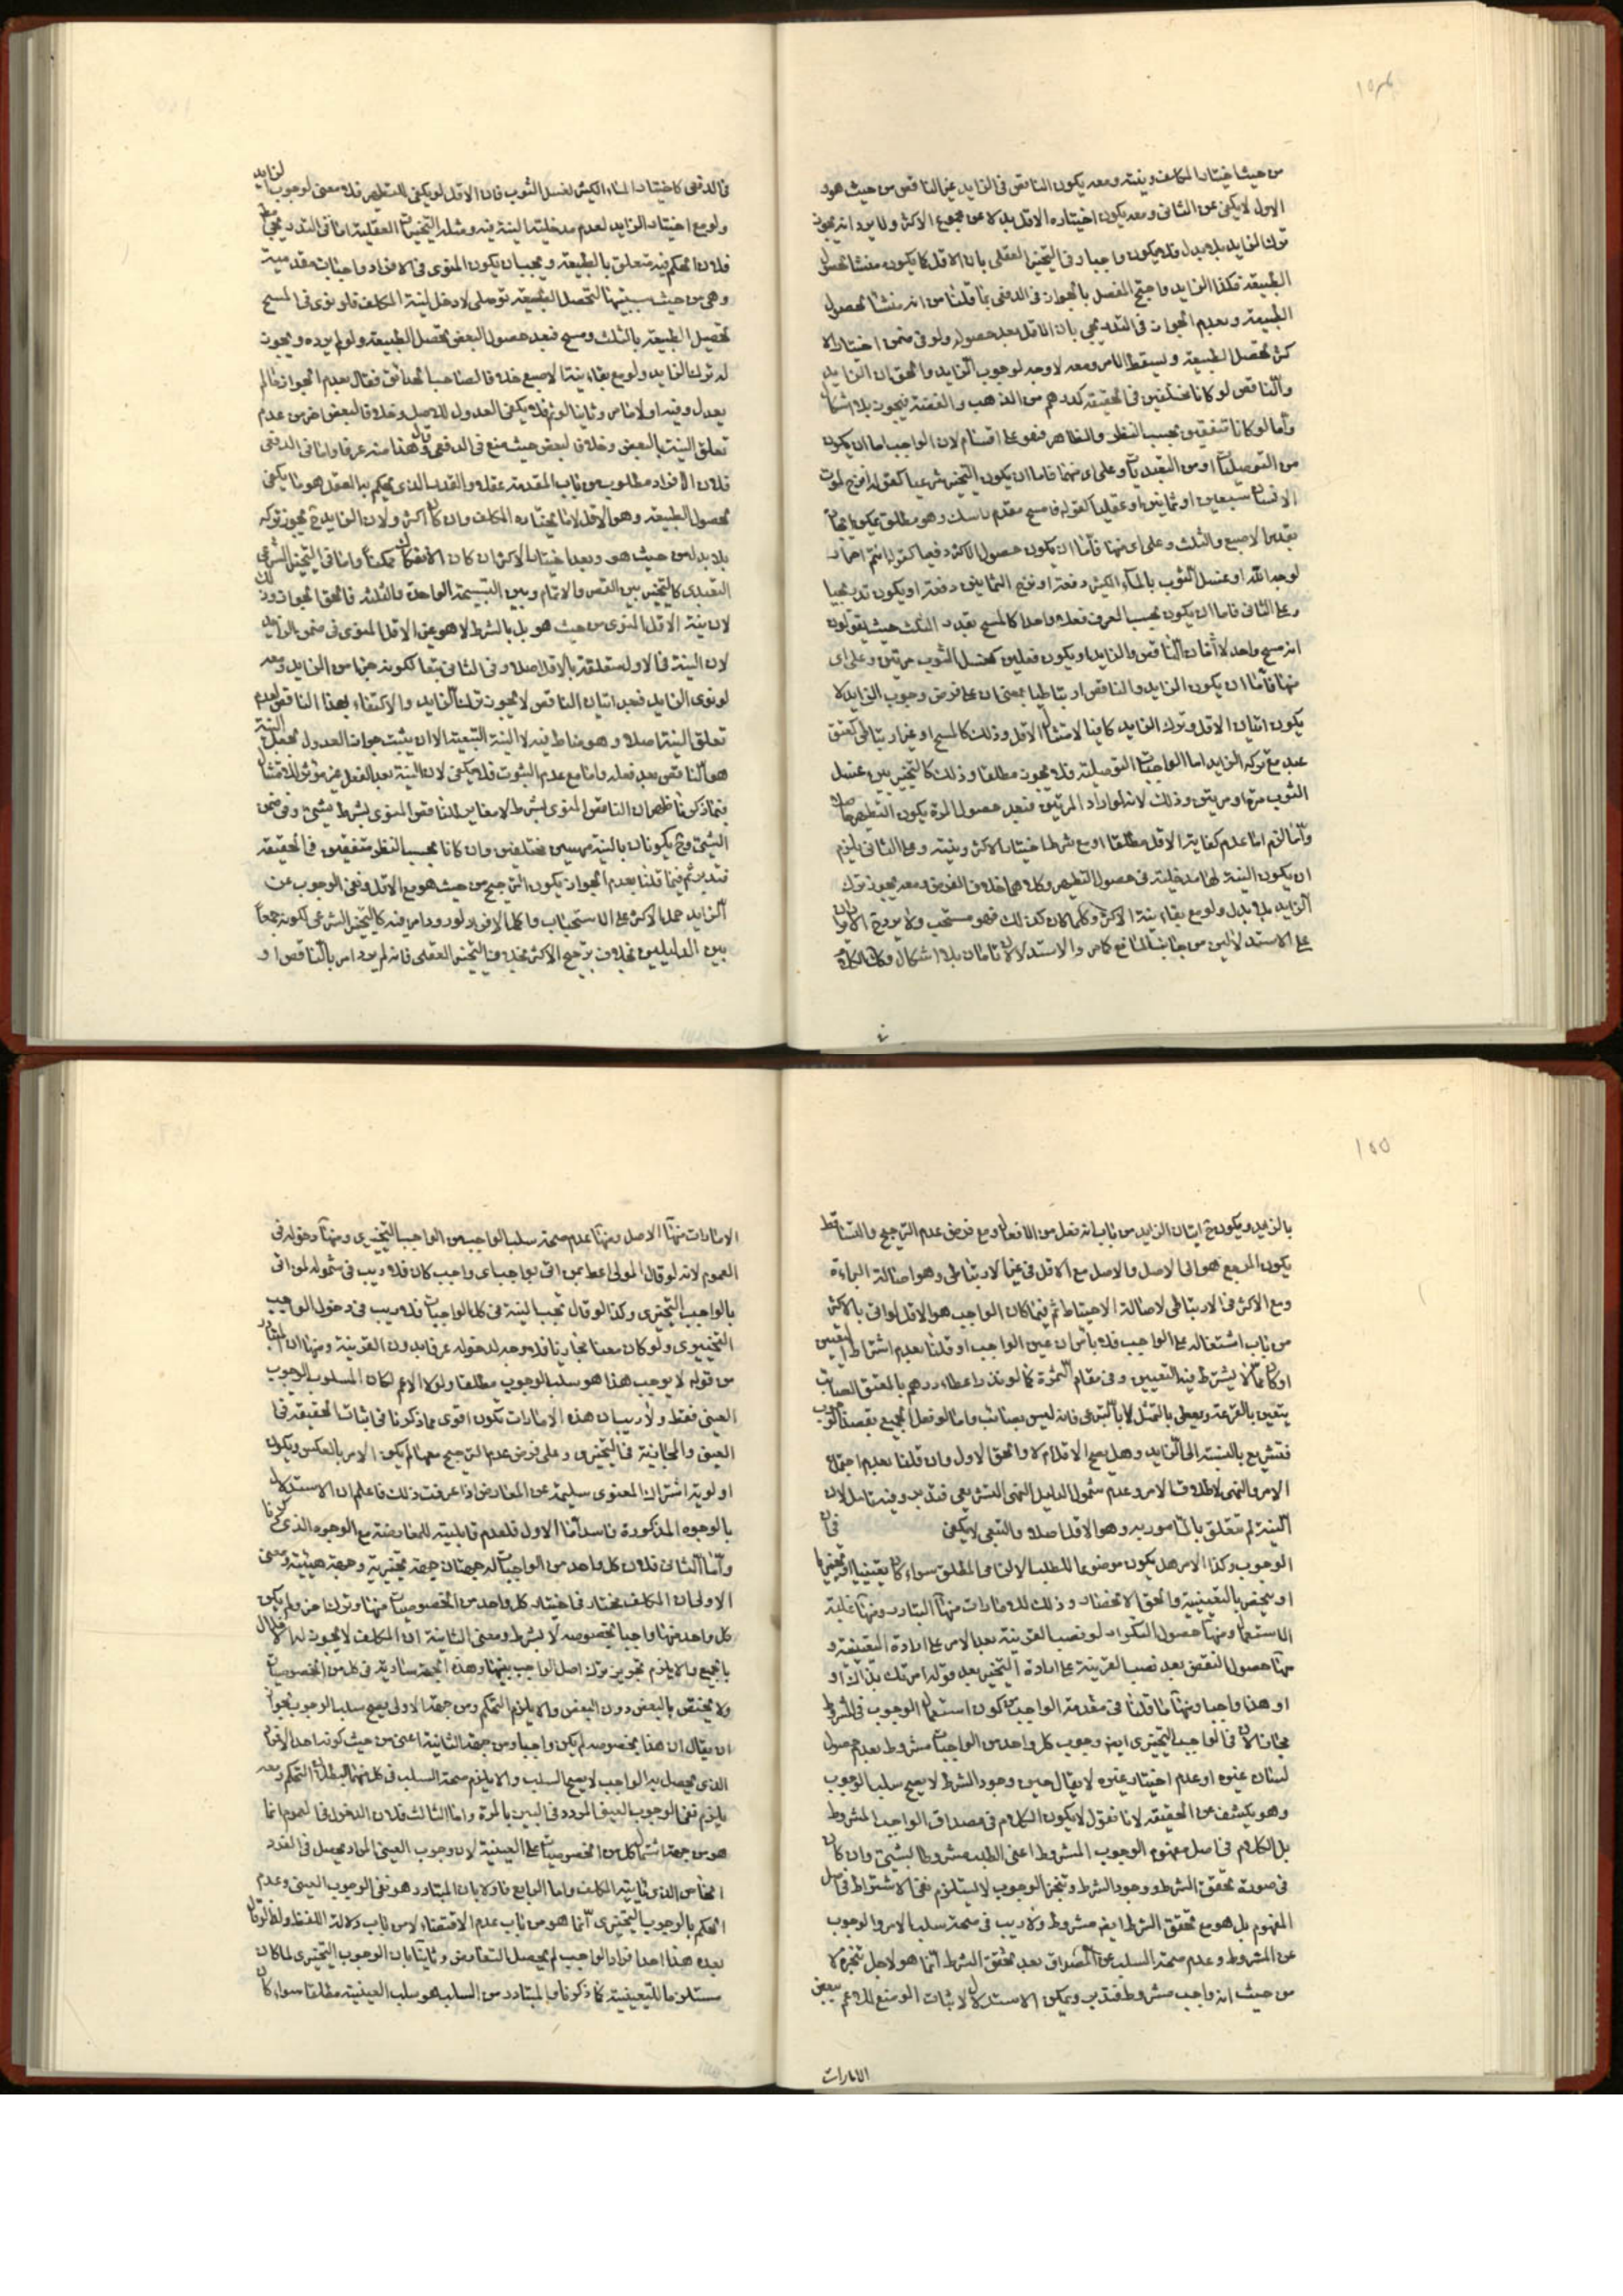 ١٥٤
من حيث اختيار المكلف ونيته ومعه يكون الناقص في الزايد غير الناقص من حيث هو و
الاول لا يكفى عن الثانى ومعه يكون اختياره الاقل بدلا عن مجموع الاكثر ولا يرد انه يجوز
ترك الزايد بلا بدل فلا يكون واجبا وفى التخيير العقلى بان الاقل كما يكون منشأ لحصول
الطبيعة فكذا الزايد واحتج المفصل بالجواز فى الدفعى بما قلنا من انه منشأ لحصول
الطبيعة وبعدم الجواز فى التدريجى بان الاقل بعد حصوله ولو فى ضمن اختيار الا
كثر تحصل الطبيعة ويسقط الامر ومعه لا وجه لوجوب الزايد والحق ان الزايد
والناقص لو كانا مختلفين فى الحقيقة كدرهم من الذهب والفضة فيجوز بلا اشكال
وأما لو كانا متفقين بحسب النظر والظاهر فهو على اقسام لان الواجب اما ان يكون
من التوصليات او من التعبديات وعلى اى منهما فاما ان يكون التخيير شرعيا كقوله انزح لموت
الانسان سبعين او ثمانين او عقليا كقوله فامسح مقدم راسك وهو مطلق يمكن اتيانه
بقدر الاصبع والثلث وعلى اى منهما فأما ان يكون حصول الاكثر دفعيا كقوله
لوجه الله او غسل الثوب بالماء الكثير دفعة او نزح الثمانين دفعة او يكون تدريجيا
وعلى الثانى فاما ان يكون بحسب العرف فعلا واحدا كالمسح بقدر الثلث حيث يقولون
انه مسح واحد لا الناقص والزايد او يكون فعلين كغسل الثوب مرتين وعلى اى
منها فأما ان يكون الزايد والناقص ارتباطيا بمعنى ان على فرض وجوب الزايد لا
يكون اتيان الاقل وترك الزايد كافيا لامتثال الاقل وذلك كالمسح او غير ارتباطى كعتق
عبد مع تركه الزايد اما الواجبات التوصلية فلا يجوز مطلقا وذلك كالتخيير بين غسل
الثوب مرة او مرتين وذلك لانه لو اراد المرتين فبعد حصول المرة يكون التطهير حاصلا
والا لزم اما عدم كفاية الاقل مطلقا او مع شرط اختيار الاكثر ونيته وعلى الثانى يلزم
ان يكون النية لها مدخلية فى حصول التطهير وكلاهما خلاف الفرض ومعه يجوز ترك
الزايد بلا بدل ولو مع بقاء نية الاكثر وكلما كان كذلك فهو مستحب ولا يرد ح الايراد ان
على الاستدلالين من جانب المانع كما مر والاستدلالان تامان بلا اشكال
فى الدفعى كاختيار الماء الكثير لغسل الثوب فان الاقل لو يكفى للتطهير فلا معنى لوجوب الزايد
ولو مع اختيار الزايد لعدم مدخلية النية فيه ومثله التخييرات العقلية اما فى التدريجى مطلقا
فلان الحكم فيه متعلق بالطبيعة ويجب ان يكون المنوى فى الافراد واجبات مقدمية
وهى من حيث سببيتها لتحصل الطبيعة توصلى لا دخل لنية المكلف فلو نوى فى المسح
تحصيل الطبيعة بالثلث ومسح فبعد حصول البعض تحصل الطبيعة ولو لم يرده ويجوز
له ترك الزايد ولو مع بقاء نية الاصبع خلافا لصاحب الحدائق فقال بعدم الجواز ما لم
يعدل وفيه اولا ما مر وثانيا لو تم فلا يكفى العدول للاصل وخلافا لبعض اخر من عدم
تعلق النية بالبعض وخلافا لبعض حيث منع فى الدفعى وقال هذا منه عرفا واما فى الدفعى
فلان الافراد مطلوب من باب المقدمة عقلا والقدر الذى يحكم به العقل هو ما يكفى
بحصول الطبيعة وهو الاقل لا ما يختاره المكلف وان كان اكثر ولان الزايد ح يجوز تركه
بلا بدل من حيث هو وبعد اختيار الاكثر ان كان الانفكاك ممكنا واما فى التخيير الشرعى
التعبدى كالتخيير بين القصر والاتمام وبين التسبيحة الواحدة والثلثة فالحق الجواز وذلك
لان نية الاقل المنوى من حيث هو بل بالشرط لا هو غير الاقل المنوى فى ضمن الزايد
لان النية فى الاول متعلقة بالاقل اصلا وفى الثانى تبعا لكونه جزءا من الزايد ومعه
لو نوى الزايد فبعد اتيان الناقص لا يجوز ترك الزايد والاكتفاء بهذا الناقص لعدم
تعلق النية اصلا وهو مناط فيه لا النية التبعية الا ان يثبت جواز العدول بجعل النية
هو الناقص بعد فعله واما مع عدم الثبوت فلا يكفى لان النية بعد الفعل غير مؤثر للامتثال
فبما ذكرنا ظهر ان الناقص المنوى بشرط لا مغاير للناقص المنوى بشرط شىء وفى ضمن
الشىء وح يكونان بالنية مهيتين مختلفتين وان كانا بحسب النظر متفقين فى الحقيقة
فتدبر ثم فيما قلنا بعدم الجواز يكون الترجيح من حيث هو مع الاقل ونفى الوجوب عن
الزايد حملا لاكثر على الاستحباب وكلما الاخر لو ورد امر فيه كالتخيير الشرعى لكونه جمعا
بين الدليلين بخلاف ترجيح الاكثر بخلاف التخيير العقلى فانه لم يرد امر بالناقص او
١٥٥
بالزايد ويكون ح اتيان الزايد من باب انه فعل من الافعال ومع فرض عدم الترجيح والتساقط
يكون المرجع هو الى الاصل والاصل مع الاقل فى غير الارتباطى وهو اصالة البراءة
ومع الاكثر فى الارتباطى لاصالة الاحتياط ثم فيما كان الواجب هو الاقل لو اتى بالاكثر
من باب اشتماله على الواجب فلا بأس ان عين الواجب او قلنا بعدم اشتراط التعيين
او كان مما لا يشترط فيه التعيين وفى مقام الثمرة كما لو نذر اعطاء درهم بالمعتق
يتعين بالقرعة ويعطى بالتمثل لا بالتبرعى فانه ليس بصائب واما لو فعل الجميع بقصد الوجوب
فتشريع بالنسبة الى الزايد وهل يصح الاقل ام لا والحق الاول وان قلنا بعدم اجتماع
الامر والنهى لاطلاق الامر وعدم شمول الدليل النهى التشريعى فتدبر وفيه تامل لان
النية لم تتعلق بالمأمور به وهو الاقل اصلا والتبعى لا يكفى فى ان
الوجوب وكذا الامر هل يكون موضوعا للطلب الالزامى المطلق سواء كان تعيينيا او تخييريا
او يختص بالتعيينية والحق الاختصاص وذلك للامارات منها التبادر ومنها غلبة
الاستعمال ومنها حصول التكرار لو نصب القرينة بعد الامر على ارادة التعيينية و
منها حصول التناقض بعد نصب القرينة على ارادة التخيير بعد قوله امرتك بذاك او
او هذا واجب ومنها ما قلنا فى مقدمة الواجب من كون استعمال الوجوب فى المشروط
مجازا لان فى الواجب التخييرى ايضا وجوب كل واحد من الواجبات مشروط بعدم حصول
اتيان غيره او عدم اختيار غيره لا يقال حين وجود الشرط لا يصح سلب الوجوب
وهو يكشف عن الحقيقة لانا نقول لا يكون الكلام فى مصداق الواجب المشروط
بل الكلام فى اصل مفهوم الوجوب المشروط اعنى الطلب مشروطا بشىء وان كان
فى صورة تحقق الشرط ووجود الشرط وتنجز الوجوب لا يستلزم نفى الاشتراط فى اصل
المفهوم بل هو مع تحقق الشرط ايضا مشروط ولا ريب فى صحة سلب الامر والوجوب
عن المشروط وعدم صحة السلب عن المصداق بعد تحقق الشرط انما هو لاجل تنجزه لا
من حيث انه واجب مشروط فتدبر ويمكن الاستدلال لاثبات الوضع للاعم ببعض
الامارات
الامارات منها الاصل ومنها عدم صحة سلب الواجب من الواجب التخييرى ومنها دخوله فى
العموم لانه لو قال المولى اعط من اتى بواجب اى واجب كان فلا ريب فى شموله لمن اتى
بالواجب التخييرى وكذا لو قال تجب النية فى كل الواجبات فلا ريب فى دخول الواجب
التخييرى ولو كان معنا مجازيا فلا وجه لدخوله عرفا بدون القرينة ومنها ان المتبادر
من قوله لا يوجب هذا هو سلب الوجوب مطلقا ولولا الاعم لكان المسلوب الوجوب
العينى فقط ولا ريب ان هذه الامارات تكون اقوى مما ذكرنا فى اثبات الحقيقة فى
العينى والمجازية فى التخييرى وعلى فرض عدم الترجيح معها لم يكن الامر بالعكس ويكون
اولوية اشتراك المعنوى سليمة عن المعارض اذا عرفت ذلك فاعلم ان الاستدلال
بالوجوه المذكورة فاسد أما الاول فلعدم قابليته للمعارضة مع الوجوه الذى ذكرنا
وأما الثانى فلان كل واحد من الواجبات له جهتان جهة تخييرية وجهة عينية ومعنى
الاولى ان المكلف مختار فى اختيار كل واحد من الخصوصيات منها وترك اخر ولم يكن
كل واحد منها واجبا بخصوصه لا بشرط ومعنى الثانية ان المكلف لا يجوز له الاخلال
بالجميع والا يلزم تجويز ترك اصل الواجب بينها وهذه الجهة سارية فى كل من الخصوصيات
ولا يختص بالبعض دون البعض والا يلزم التحكم ومن جهة الاولى يصح سلب الوجوب بجواز
ان يقال ان هذا بخصوصه لم يكن واجبا ومن جهة الثانية اعنى من حيث كونه احد الافراد
الذى يحصل به الواجب لا يصح السلب والا يلزم صحة السلب فى كل منها لبطلان التحكم ومعه
يلزم نفى الوجوب العينى المردد فى البين بالمرة واما الثالث فلان الدخول فى العموم انما
هو من جهة اشتمال كل من الخصوصيات على العينية لان وجوب العينى المراد يحصل فى الفرد
الخاص الذى ياتيه المكلف واما الرابع فاولا بان المتبادر هو نفى الوجوب العينى وعدم
الحكم بالوجوب التخييرى انما هو من باب عدم الاقتضاء لا من باب دلالة اللفظ ولذا لو قال
بعده هذا احد افراد الواجب لم يحصل التعارض وثانيا بان الوجوب التخييرى لما كان
مستلزما للتعيينية كما ذكرنا والمتبادر من السلب هو سلب العينية مطلقا سواء كان